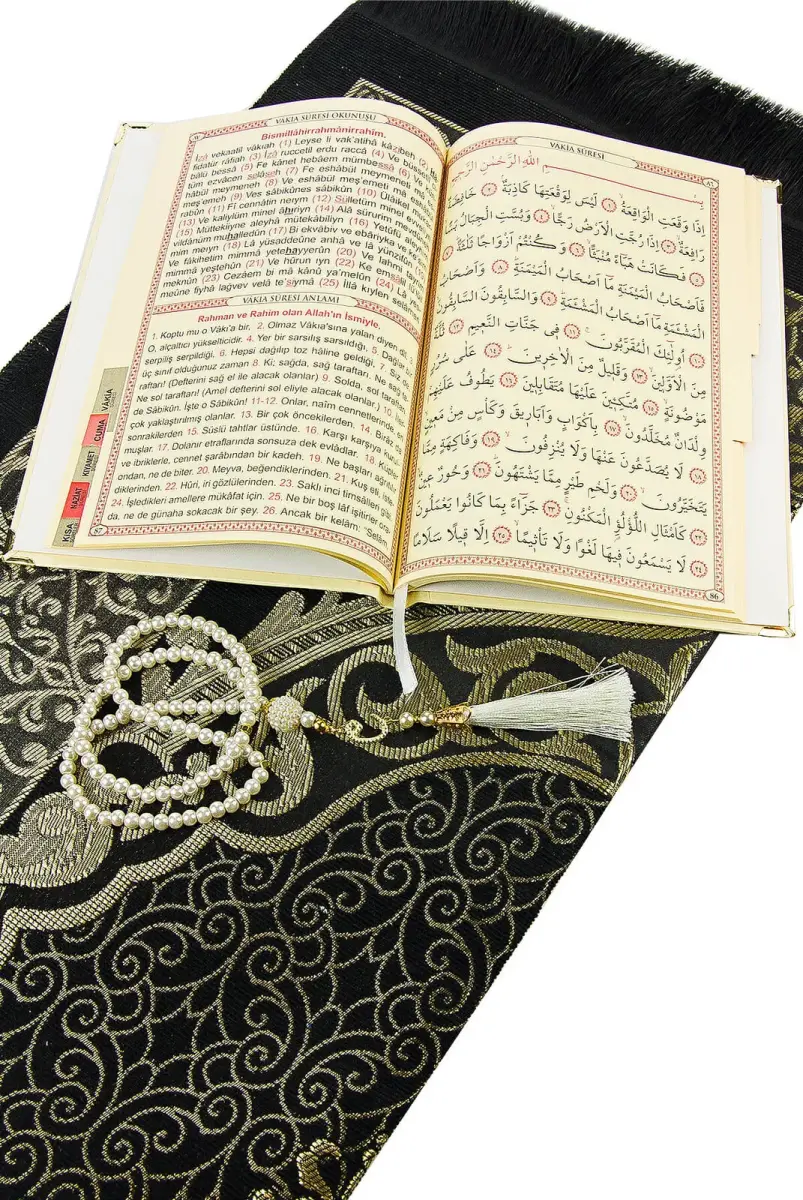 VAKIA SÛRESİ OKUNUŞU
Bismillâhirrahmânirrahîm.
İzâ vekaatil vâkıah (1) Leyse li vak'atihâ kâzibeh (2)
fidatür râfiah (3) İzâ ruccetil erdu raccâ (4) Ve büsse
bâlü bessâ (5) Fe kânet hebâem mümbessâ (6) Ve
tüm ezvâcen selâseh (7) Fe eshâbül meymeneti
hâbül meymeneh (8) Ve eshâbül meş'emeti mâ
meş'emeh (9) Ves sâbikûnes sâbikûn (10) Ülâikel
rabûn (11) Fî cennâtin neıym (12) Sülletüm minel evvelîn
(13) Ve kalîylüm minel âhıriyn (14) Alâ sürurim mevdûneh
(15) Müttekiiyne aleyhâ mütekâbiliyn (16) Yetûfü aleyhim
vildânüm muhalledûn (17) Bi ekvâbiv ve ebârıyka ve ke'sim
mim meıyn (18) Lâ yüsaddeûne anhâ ve lâ yünzifûn
Ve fâkihetim mimmâ yetehayyerûn (20) Ve lahmi
mimmâ yeştehûn (21) Ve hûrun ıyn (22) Ke emsâlil
meknûn (23) Cezâem bi mâ kânû ya'melûn (24) Lâ
meûne fîyhâ lağvev velâ te'sîymâ (25) İllâ kıylen selâmen
VAKIA SÛRESİ ANLAMI
Rahman ve Rahim olan Allah'ın İsmiyle.
1. Koptu mu o Vâkı'a bir. 2. Olmaz Vâkıa'sına yalan diyen dil
O, alçaltıcı yükselticidir. 4. Yer bir sarsılış sarsıldığı, 5. Dağlar
serpiliş serpildiği. 6. Hepsi dağılıp toz hâline geldiği, 7. Siz
üç sınıf olduğunuz zaman 8. Ki; sağda, sağ tarafları. Ne sağ
taraftarı! (Defterini sağ el ile alacak olanlar) 9. Solda, sol tarafları.
Ne sol taraftarı! (Amel defterini sol eliyle alacak olanlar)
de Sâbikûn. İşte o Sâbikûn! 11-12. Onlar, naîm cennetlerinde en
çok yaklaştırılmış olanlar. 13. Bir çok öncekilerden. 14. Biraz da
sonrakilerden 15. Süslü tahtlar üstünde. 16. Karşı karşıya
muşlar. 17. Dolanır etraflarında sonsuza dek evlâdlar. 18.
ve ibriklerle, cennet şarâbından bir kadeh. 19. Ne başları
ondan, ne de biter. 20. Meyva, beğendiklerinden. 21. Kuş eti,
diklerinden. 22. Hûri, iri gözlülerinden. 23. Saklı inci timsâlleri
24. İşledikleri amellere mükâfat için. 25. Ne bir boş lâf işitirler
da, ne de günaha sokacak bir şey. 26. Ancak bir kelâm: Selâm
VÂKIA
CUMA
KIYAMET
NAZİAT
KISA
VAKIA SÛRESİ
بِسْمِ اللّٰهِ الرَّحْمٰنِ الرَّحِيمِ
اِذَا وَقَعَتِ الْوَاقِعَةُ ﴿١﴾ لَيْسَ لِوَقْعَتِهَا كَاذِبَةٌ ﴿٢﴾ خَافِضَةٌ
رَافِعَةٌ ﴿٣﴾ اِذَا رُجَّتِ الْاَرْضُ رَجًّا ﴿٤﴾ وَبُسَّتِ الْجِبَالُ بَسًّا
﴿٥﴾ فَكَانَتْ هَبَٓاءً مُنْبَثًّا ﴿٦﴾ وَكُنْتُمْ اَزْوَاجًا ثَلٰثَةً ﴿٧﴾
فَاَصْحَابُ الْمَيْمَنَةِ مَٓا اَصْحَابُ الْمَيْمَنَةِ ﴿٨﴾ وَاَصْحَابُ
الْمَشْـَٔمَةِ مَٓا اَصْحَابُ الْمَشْـَٔمَةِ ﴿٩﴾ وَالسَّابِقُونَ السَّابِقُونَ
﴿١٠﴾ اُولٰٓئِكَ الْمُقَرَّبُونَ ﴿١١﴾ فِي جَنَّاتِ النَّعِيمِ ﴿١٢﴾ ثُلَّةٌ
مِنَ الْاَوَّلِينَ ﴿١٣﴾ وَقَلِيلٌ مِنَ الْاٰخِرِينَ ﴿١٤﴾ عَلٰى سُرُرٍ
مَوْضُونَةٍ ﴿١٥﴾ مُتَّكِـِٔينَ عَلَيْهَا مُتَقَابِلِينَ ﴿١٦﴾ يَطُوفُ عَلَيْهِمْ
وِلْدَانٌ مُخَلَّدُونَ ﴿١٧﴾ بِاَكْوَابٍ وَاَبَارِيقَ وَكَأْسٍ مِنْ مَعِينٍ
﴿١٨﴾ لَا يُصَدَّعُونَ عَنْهَا وَلَا يُنْزِفُونَ ﴿١٩﴾ وَفَاكِهَةٍ مِمَّا
يَتَخَيَّرُونَ ﴿٢٠﴾ وَلَحْمِ طَيْرٍ مِمَّا يَشْتَهُونَ ﴿٢١﴾ وَحُورٌ عِينٌ
﴿٢٢﴾ كَاَمْثَالِ اللُّؤْلُؤِ الْمَكْنُونِ ﴿٢٣﴾ جَزَٓاءً بِمَا كَانُوا يَعْمَلُونَ
﴿٢٤﴾ لَا يَسْمَعُونَ فِيهَا لَغْوًا وَلَا تَأْثِيمًا ﴿٢٥﴾ اِلَّا قِيلًا سَلَامًا
86